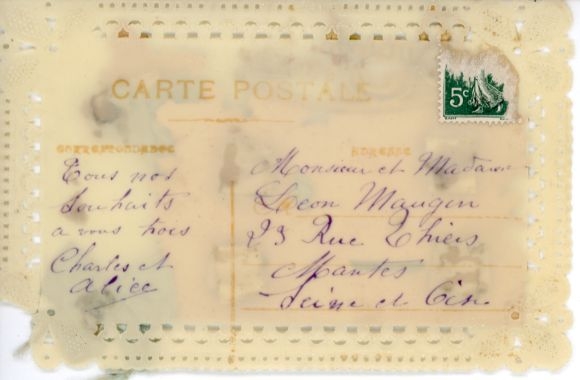 CARTE POSTALE
5c
CORRESPONDANCE
Tous nos
Souhaits
a vous trois
Charles et
Alice
ADRESSE
Monsieur et Madame
Leon Maugin
23 Rue Thiers
Mantes
Seine et Oise